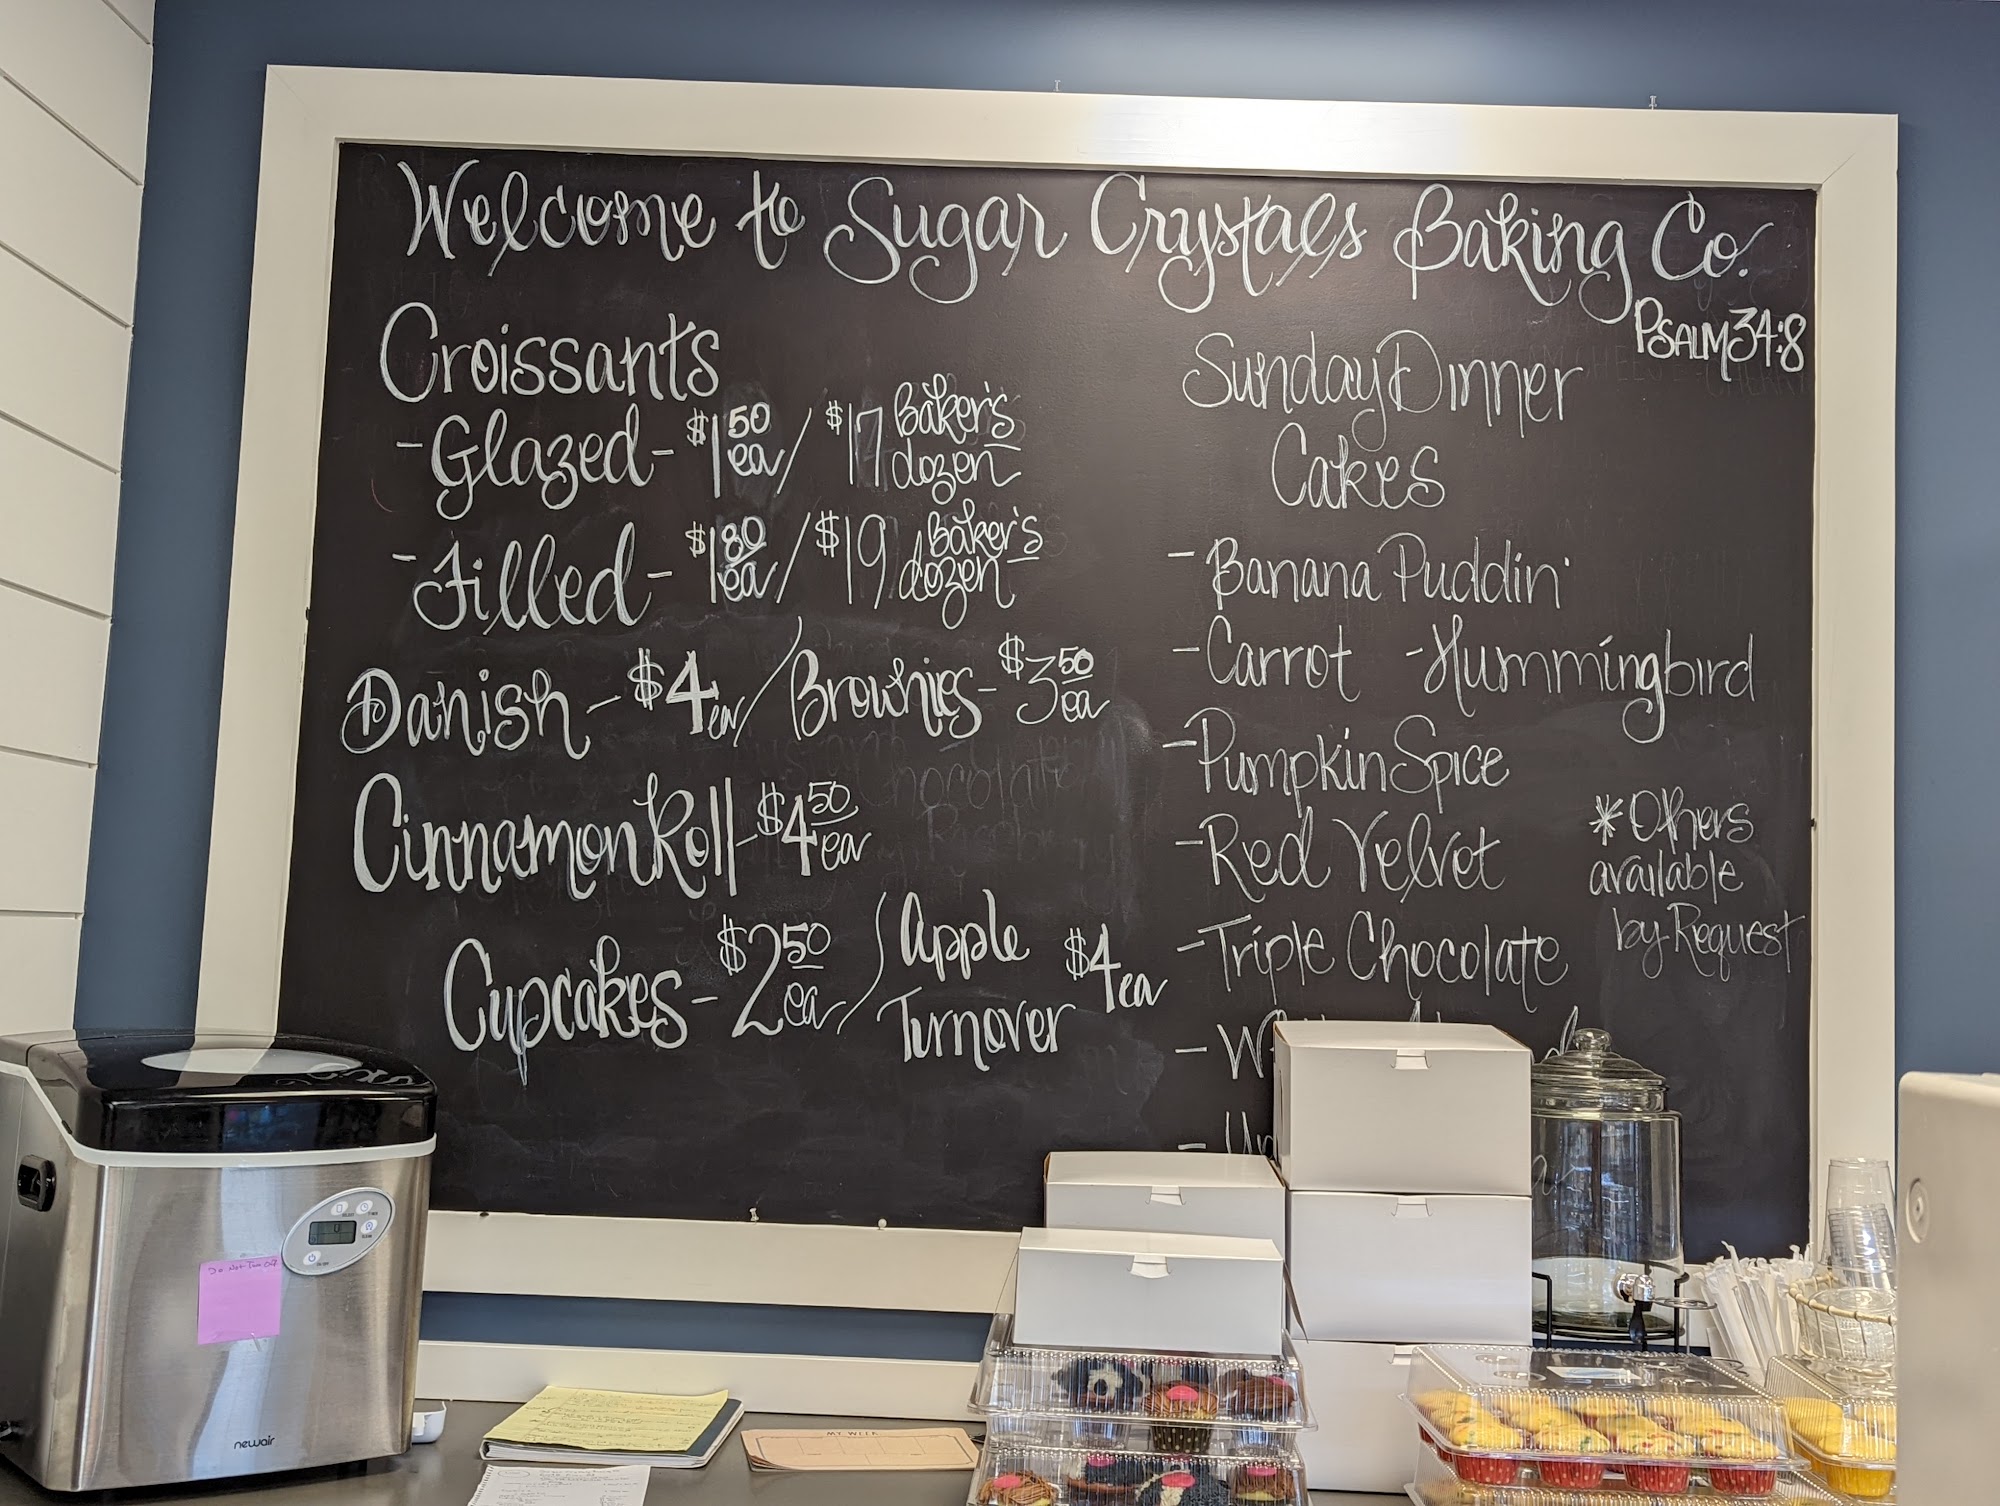 Welcome to Sugar Crystals Baking Co.
Psalm 34:8
Croissants
- Glazed - $1 50 ea / $17 Baker's dozen
- Filled - $1 80 ea / $19 Baker's dozen
Danish - $4 ea / Brownies - $3 50 ea
Cinnamon Roll - $4 50 ea
Cupcakes - $2 50 ea / Apple Turnover $4 ea
Sunday Dinner
Cakes
- Banana Puddin'
- Carrot - Hummingbird
- Pumpkin Spice
- Red Velvet
- Triple Chocolate
* Others
available
by Request
Do Not Turn Off
newair
MY WEEK